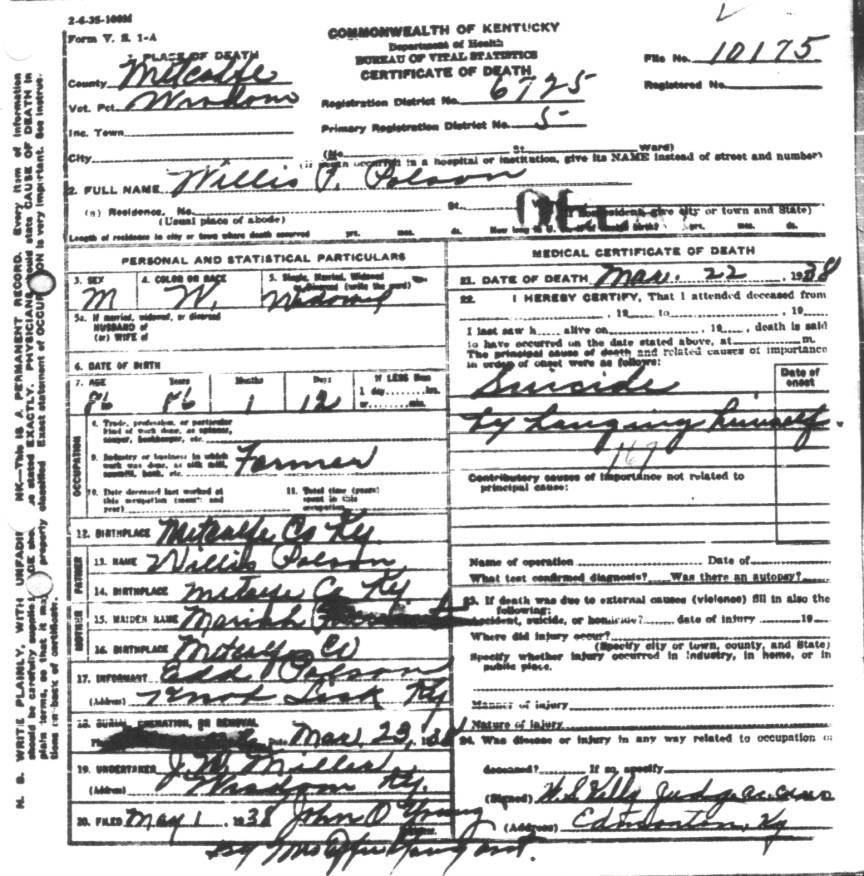 2-6-35-100M
Form V. S. 1-A
COMMONWEALTH OF KENTUCKY
Department of Health
BUREAU OF VITAL STATISTICS
CERTIFICATE OF DEATH
File No. 10175
Registered No.
1. PLACE OF DEATH
County Metcalfe
Vot. Pct. Wisdom
Inc. Town
City
Registration District No. 6725
Primary Registration District No. 5
(No. St. Ward)
(If death occurred in a hospital or institution, give its NAME instead of street and number)
2. FULL NAME Willis F. Polson
(a) Residence, No. St.
(Usual place of abode) (If nonresident give city or town and State)
Length of residence in city or town where death occurred yrs. mos. ds. How long in U. S. birth? yrs. mos. ds.
PERSONAL AND STATISTICAL PARTICULARS
3. SEX M 4. COLOR OR RACE W. 5. Single, Married, Widowed or Divorced (write the word) Widowed
5a. If married, widowed, or divorced
HUSBAND of
(or) WIFE of
6. DATE OF BIRTH
7. AGE 86 Years 86 Months 1 Days 12 If LESS than 1 day hrs. or min.
OCCUPATION
8. Trade, profession, or particular kind of work done, as spinner, sawyer, bookkeeper, etc.
9. Industry or business in which work was done, as silk mill, sawmill, bank, etc. Farmer
10. Date deceased last worked at this occupation (month and year)
11. Total time (years) spent in this occupation
12. BIRTHPLACE Metcalfe Co Ky.
FATHER
13. NAME Willis Polson
14. BIRTHPLACE Metcalfe Co Ky
MOTHER
15. MAIDEN NAME Mariah
16. BIRTHPLACE Metcalfe Co
17. INFORMANT Edd Polson
(Address) Knob Lick Ky
18. BURIAL, CREMATION, OR REMOVAL
Date Mar. 23, 1938
19. UNDERTAKER J. W. Miller
(Address) Wisdom Ky.
20. FILED May 1, 1938 John O Young
MEDICAL CERTIFICATE OF DEATH
21. DATE OF DEATH Mar. 22, 1938
22. I HEREBY CERTIFY, That I attended deceased from
, 19 to , 19
I last saw h alive on , 19 , death is said
to have occurred on the date stated above, at m.
The principal cause of death and related causes of importance
in order of onset were as follows:
Date of onset
Suicide
by hanging himself.
167
Contributory causes of importance not related to
principal cause:
Name of operation Date of
What test confirmed diagnosis? Was there an autopsy?
23. If death was due to external causes (violence) fill in also the
following:
Accident, suicide, or homicide? date of injury 19
Where did injury occur?
(Specify city or town, county, and State)
Specify whether injury occurred in industry, in home, or in
public place.
Manner of injury
Nature of injury
24. Was disease or injury in any way related to occupation of
deceased? If so, specify
(Signed)
(Address) Edmonton, Ky